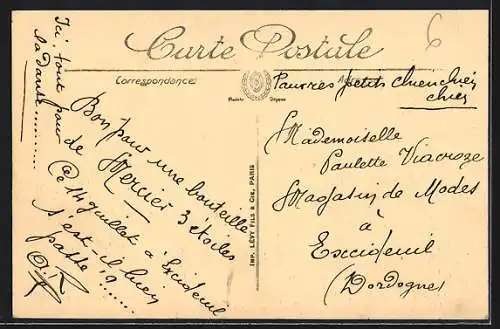 6
Carte Postale
Correspondance
Adresse
Pauvres petits chien chien
chien
Ici, tout pour
la danse..........
Bon pour une bouteille
de Mercier 3 étoiles
Ce 14 juillet à Excideuil
s'est-il bien
passé?......
IMP. LÉVY FILS & CIE, PARIS
Mademoiselle
Paulette Viacroze
Magasin de Modes
à
Excideuil
(Dordogne)